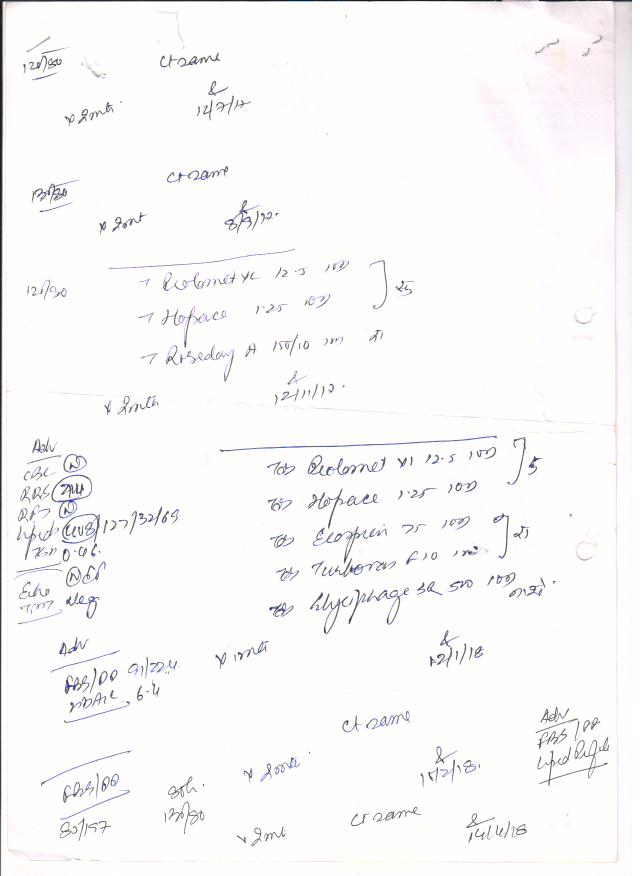 120/80 Ct same
x 2mth. 12/7/17
130/80 Ct same
x 2mt 8/9/17.
120/80 Prolomet XL 12.5 1OD
Hopace 1.25 1OD
Roseday A 150/10
x 2mth 12/11/17.
Adv
CBC (N) Prolomet Xl 12.5 1OD
RBS 244 Hopace 1.25 1OD
RFT (N)
Lipid 408/127/32/69 Ecosprin 75 1OD
TSH 0.46. F 10
Echo (N) EF Glyciphage SR 500 1OD
TMT Neg
Adv
FBS/PP 91/224 x 1mth 12/1/18
HbA1c 6.4
Ct same Adv
FBS/PP
Lipid Profile
FBS/PP x 2mth. 15/2/18.
80/197 130/80 Ct same
x 2mt 14/4/18